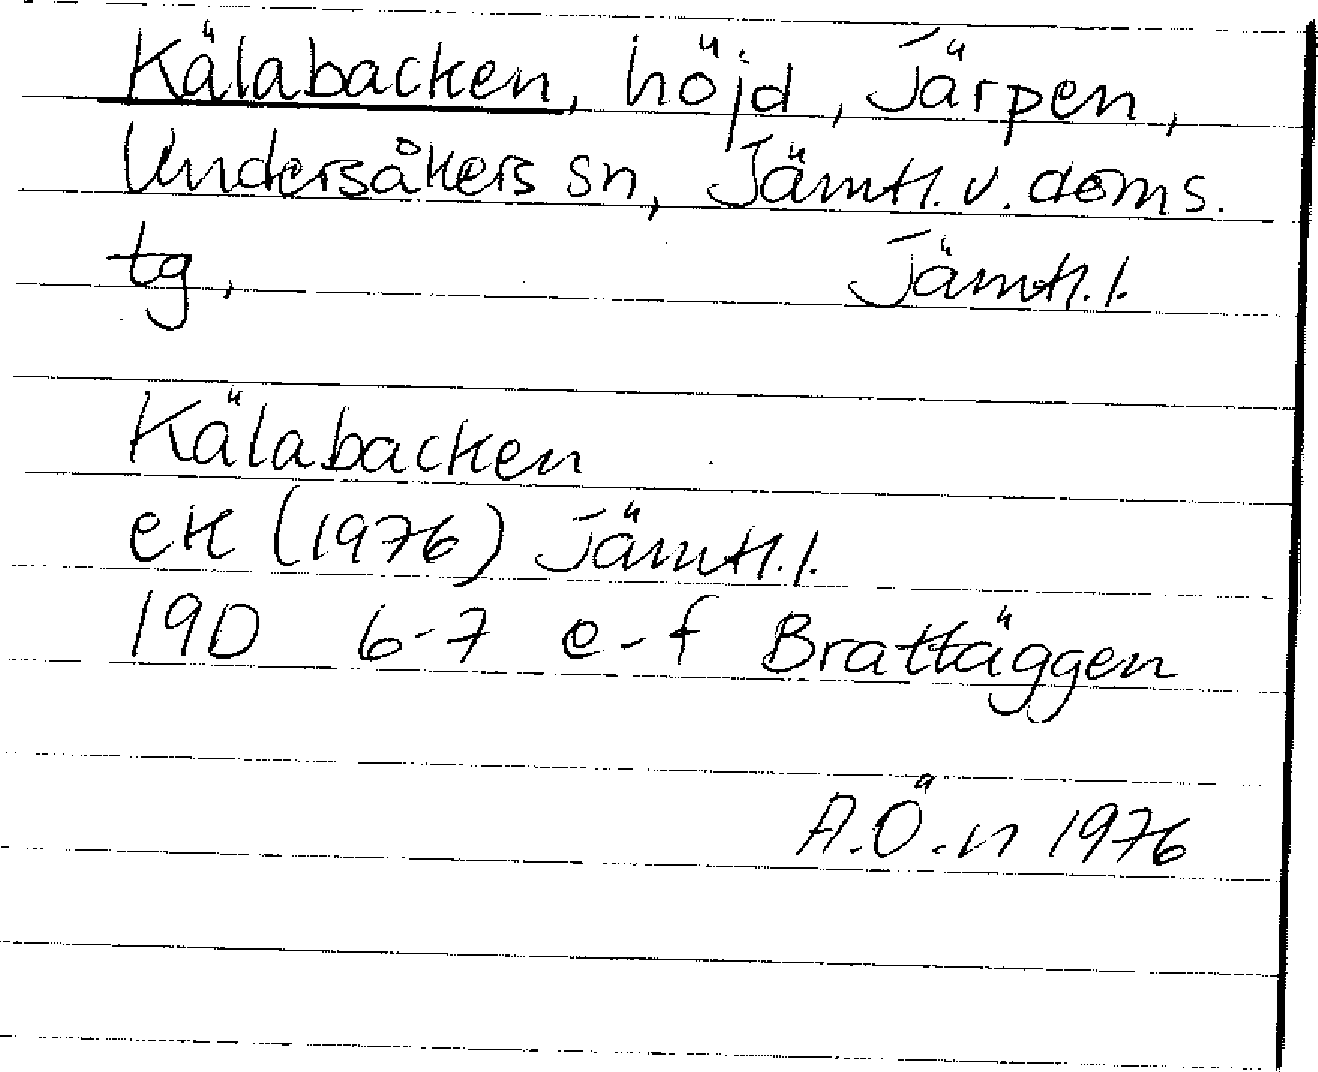 Kälabacken, höjd, Järpen,
Undersåkers sn, Jämtl. v. doms.
tg, Jämtl. l.
Kälabacken
ek (1976) Jämtl. l.
19D 6-7 e-f Brattäggen
A.Ö.n 1976